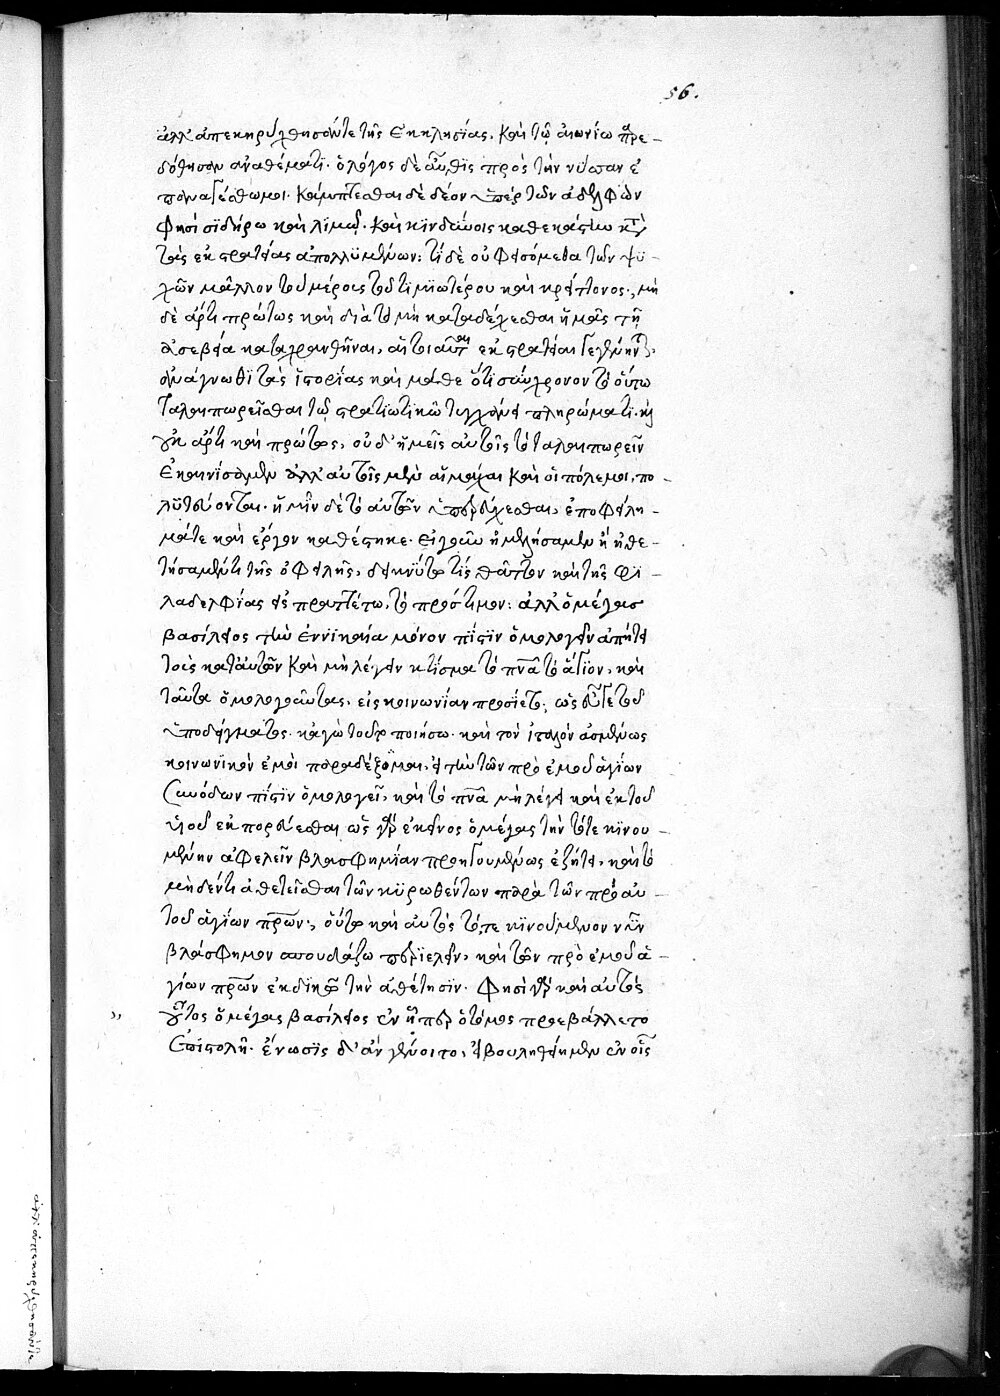 56.
ἀλλ' ἀπεκηρύχθησάν τε τῆς Ἐκκλησίας. καὶ τῷ αἰωνίῳ παρε-
δόθησαν ἀναθέματι. ὁ λόγος δὲ αὖθις πρὸς τὴν νύσσαν ἐ
παναγέσθω μοι. κάμπτεσθαι δὲ δέον ὑπὲρ τῶν ἀδελφῶν
φησὶ σιδήρῳ καὶ λιμῷ. καὶ κινδύνοις καθεκάστην κατὰ
τὰς ἐκστρατείας ἀπολλυμένων: τί δὲ οὐ φεισόμεθα τῶν ψυ-
χῶν μᾶλλον τοῦ μέρους τοῦ τιμιωτέρου καὶ κρείττονος., μὴ
δὲ ἄρτι πρώτως καὶ διὰ τὸ μὴ καταδέχεσθαι ἡμᾶς τῇ
ἀσεβείᾳ καταχρανθῆναι, αἱ τοιαῦται ἐκστρατεῖαι γεγένηνται,
ἀνάγνωθι τὰς ἱστορίας καὶ μάθε ὅτι σύγχρονον τὸ οὕτω
ταλαιπωρεῖσθαι τῷ στρατιωτικῷ τυγχάνει πληρώματι. καὶ
οὐκ ἄρτι καὶ πρώτως, οὐδ' ἡμεῖς αὐτοῖς τὸ ταλαιπωρεῖν
ἐκαινίσαμεν ἀλλ' αὐτοῖς μὲν αἱ μάχαι καὶ οἱ πόλεμοι, πο-
λιτεύονται. ἡμῖν δὲ τὸ αὐτῶν ὑπερεύχεσθαι, ἐποφείλη-
μά τε καὶ ἔργον καθέστηκε. εἰ γοῦν ἠμελήσαμεν ἢ ἠθε-
τήσαμέν τι τῆς ὀφειλῆς, δεικνύτω τίς θᾶττον καὶ τῆς φι-
λαδελφίας εἰσπραττέτω, τὸ πρόστιμον: ἀλλ' ὁ μέγας
βασίλειος τὴν ἐν νικαίᾳ μόνον πίστιν ὁμολογεῖν ἀπῄτει
τοὺς κατ' αὐτὸν καὶ μὴ λέγειν κτίσμα τὸ πνεῦμα τὸ ἅγιον, καὶ
ταῦτα ὁμολογοῦντας, εἰς κοινωνίαν προσίετο, ὡς δέ γε τοῦ
ὑποδείγματος. κἀγὼ τοῦτο ποιήσω. καὶ τὸν ἰταλὸν ἀσμένως
κοινωνικὸν ἐμοὶ παραδέξομαι, εἰ τὴν τῶν πρὸ ἐμοῦ ἁγίων
συνόδων πίστιν ὁμολογεῖ, καὶ τὸ πνεῦμα μὴ λέγει καὶ ἐκ τοῦ
υἱοῦ ἐκπορεύεσθαι ὡς γὰρ ἐκεῖνος ὁ μέγας τὴν τότε κινου-
μένην ἀφελεῖν βλασφημίαν προηγουμένως ἐζήτει, καὶ τὸ
μηδέν τι ἀθετεῖσθαι τῶν κυρωθέντων παρὰ τῶν πρὸ αὐ-
τοῦ ἁγίων πατέρων., οὕτω καὶ αὐτὸς τό, τε κινούμενον νῦν
βλάσφημον σπουδάζω περιελεῖν, καὶ τῶν πρὸ ἐμοῦ ἁ-
γίων πατέρων ἐκδικῶ τὴν ἀθέτησιν. φησὶ γὰρ καὶ αὐτὸς
οὗτος ὁ μέγας βασίλειος ἐν ᾗπερ ὁ τόμος προεβάλλετο
ἐπιστολῇ. ἕνωσις δ' ἂν γένοιτο, εἰ βουληθείημεν ἐν οἷς